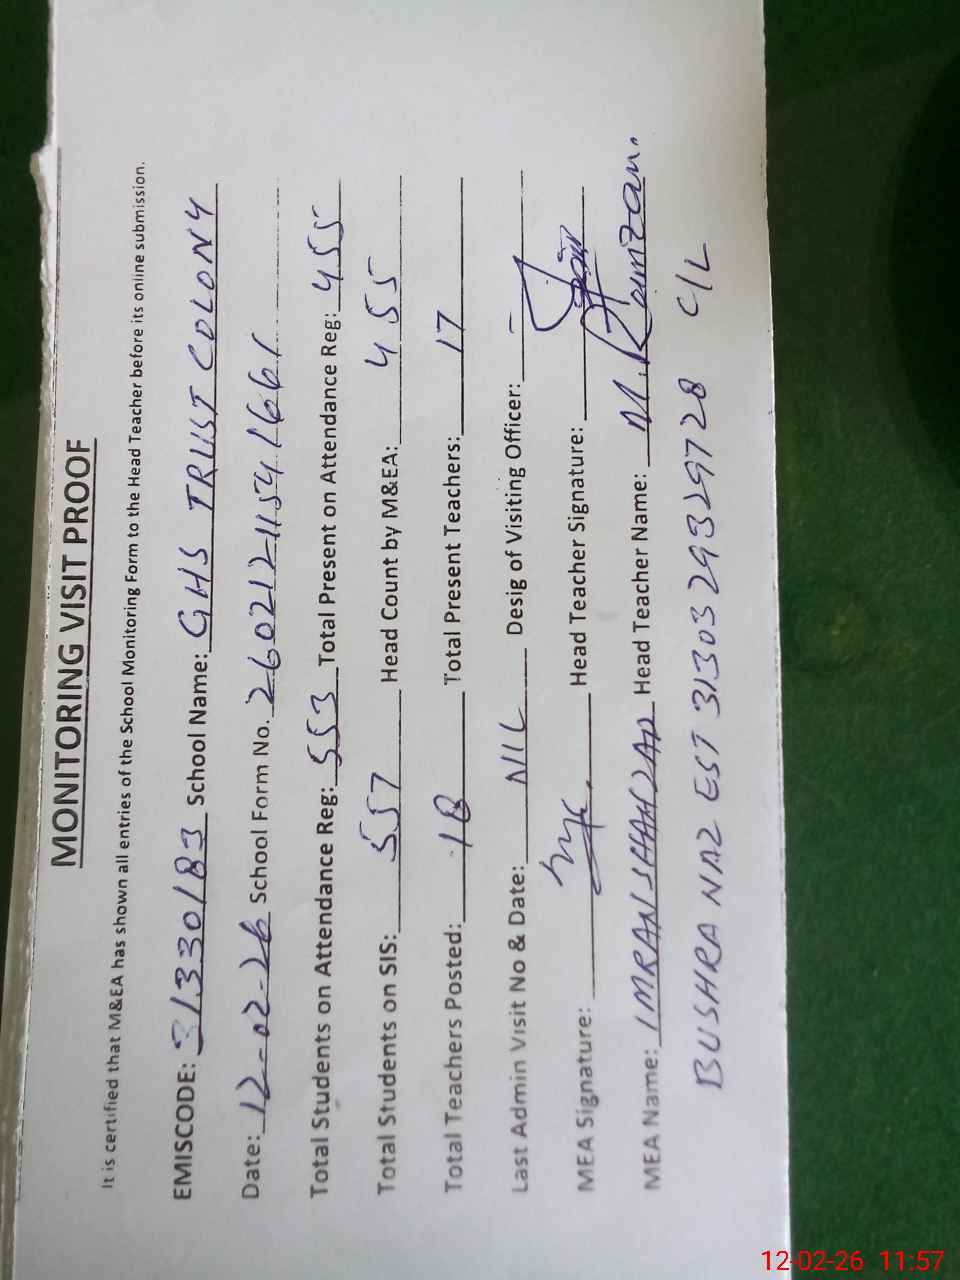 MONITORING VISIT PROOF
It is certified that M&EA has shown all entries of the School Monitoring Form to the Head Teacher before its online submission.
EMISCODE: 31330183 School Name: GHS TRUST COLONY
Date: 12-02-26 School Form No. 26021211541661
Total Students on Attendance Reg: 553 Total Present on Attendance Reg: 455
Total Students on SIS: 557 Head Count by M&EA: 455
Total Teachers Posted: 18 Total Present Teachers: 17
Last Admin Visit No & Date: NIL Desig of Visiting Officer: -
MEA Signature: Head Teacher Signature:
MEA Name: IMRAN SHAHZAD Head Teacher Name: M. Ramzan.
BUSHRA NAZ EST 3130329329728 C/L
12-02-26 11:57